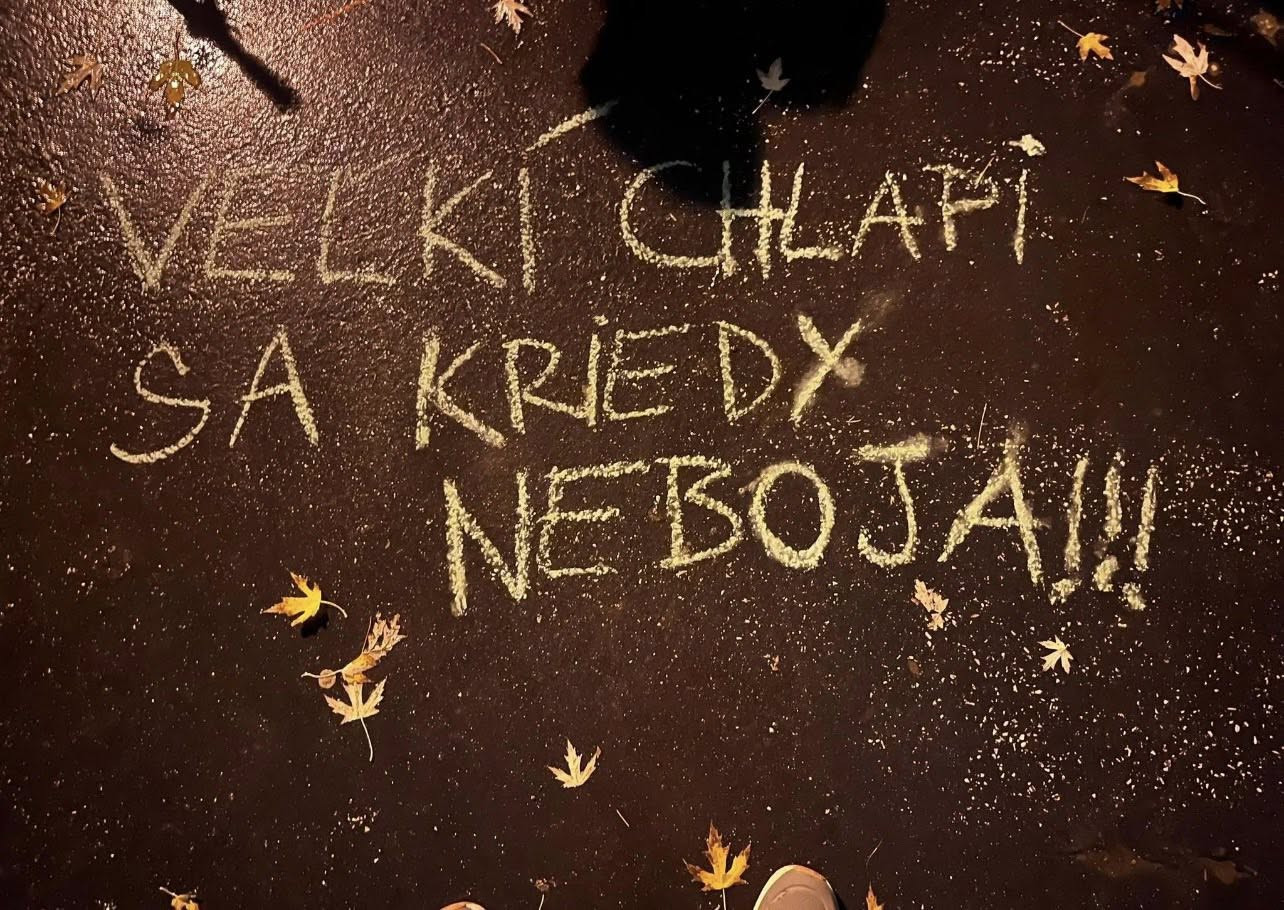 VEĽKÍ CHLAPI
SA KRIEDY
NEBOJA!!!